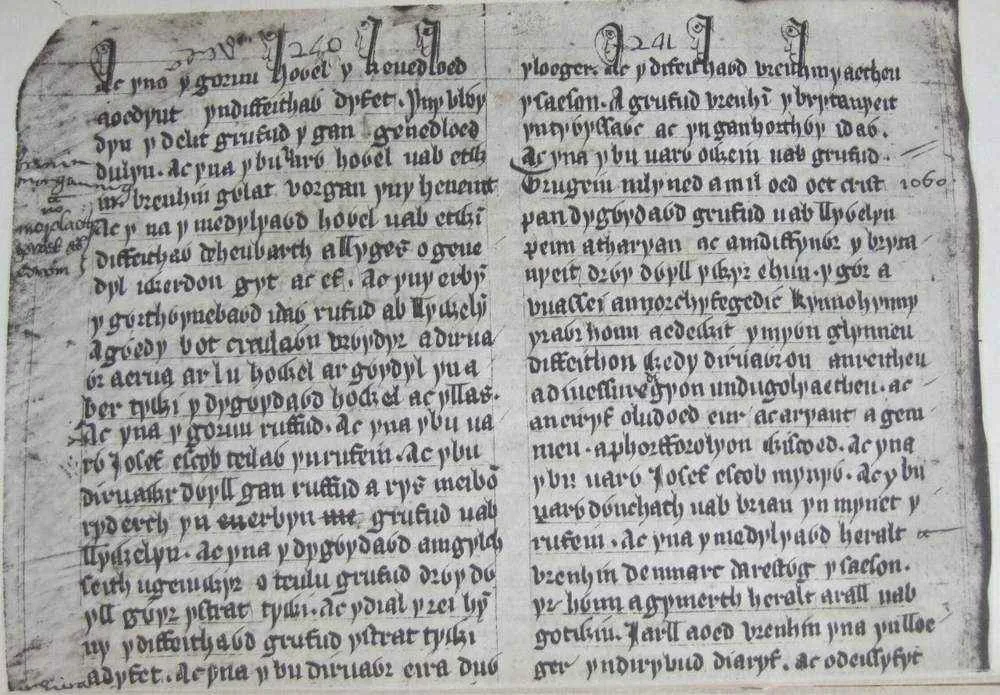 240
Ac yna y goruu howel y kenedloed
a oedynt yn diffeithaw dyfet. Yny vlwy
dyn y delit grufud y gan genedloed
dulyn. Ac yna y bu varw howel uab etwin
brenhin gwlat vorgan yny heneint
Ac y na y medylyawd howel uab etwin
diffeithaw deheubarth a llyges o gene
dyl iwerdon gyt ac ef. Ac yny erbyn
y gwrthwynebawd idaw rufud ab llywelyn
A gwedy bot creulawn vrwydyr a dirua
wr aerua ar lu howel ar gwydyl yn a
ber tywi y dygwydawd howel ac y llas.
Ac yna y goruu ruffud. Ac yna y bu ua
rw Josef escob teilaw yn rufein. Ac y bu
diruawr dwyll gan ruffud a rys meibon
ryderch yn erbyn grufud uab
llywelyn. Ac yna y dygwydawd amgylch
seith ugeinwyr o teulu grufud drwy dw
yll gwyr ystrat tywi. Ac y dial y rei hyn
ny y diffeithawd grufud ystrat tywi
a dyfet. Ac yna y bu diruawr eira duw
241
y loeger. Ac y diffeithawd vrenhinyaetheu
y saeson. A grufud vrenhin y brytanyeit
yn tywyssawc ac yn ganhorthwy idaw.
Ac yna y bu varw owein uab grufud.
Trugein mlyned a mil oed oet crist 1060
pan dygwydawd grufud uab llywelyn
penn a tharyan ac amdiffynwr y bryta
nyeit drwy dwyll y wyr e hun. y gwr a
vuassei annorchyfegedic kynno hynny
yr awr honn a edewit y mywn glynneu
diffeithon wedy diruawrion anreitheu
a diuessuredigyon uudugolyaetheu. ac
aneiryf oludoed eur ac aryant a gem
meu. a phorfforolyon wiscoed. Ac yna
y bu uarw Josef escob mynyw. Ac y bu
uarw dwnchath uab brian yn mynet y
rufein. Ac yna y medylyawd heralt
vrenhin denmarc darestwg y saeson.
yr hwnn a gymerth heralt arall uab
gotwin. Jarll a oed vrenhin yna yn lloe
ger yn dirybud diaryf. ac o deissyfyt